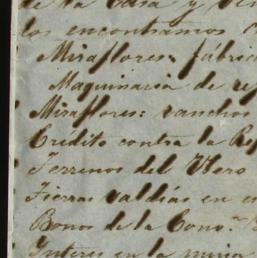 de la Casa y
los encontramos
Miraflores: fábric
Maquinaria de re
Miraflores: ranchos
Crédito contra la Rep
Terrenos del
Tierras valdías en e
Bonos de la Conv.
Interes en la mina